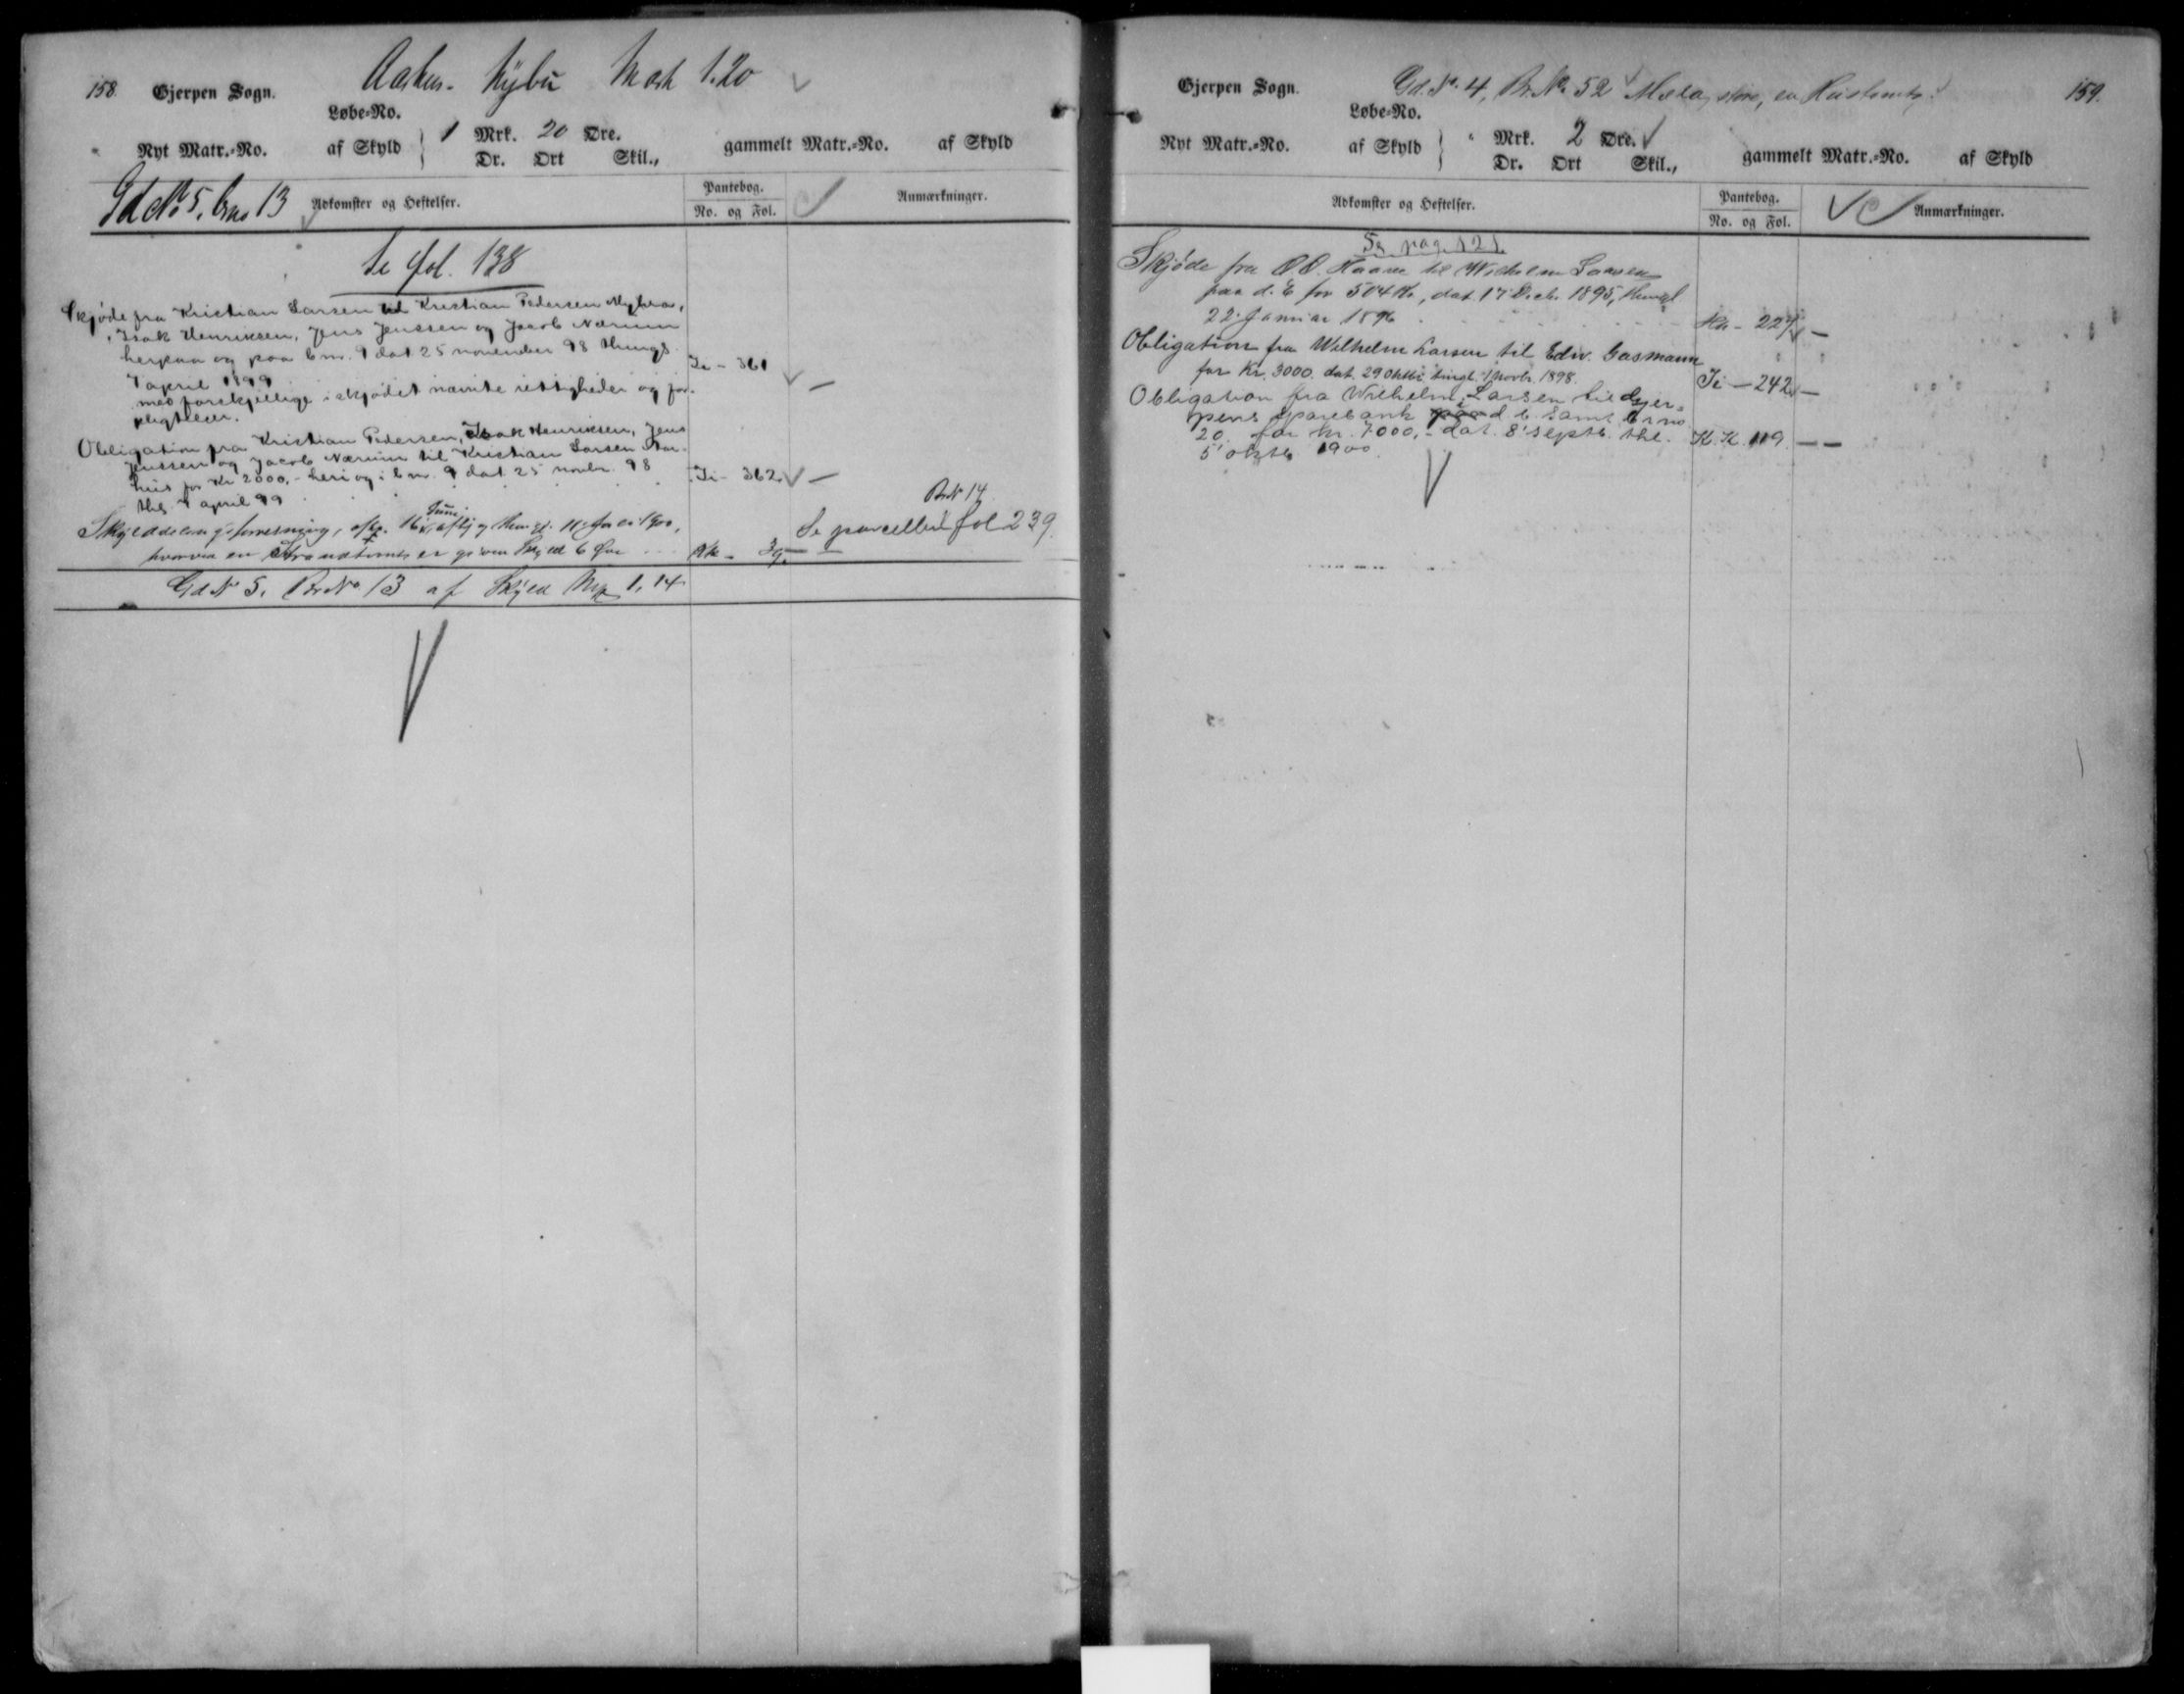 158. Gjerpen Sogn.
Nybu Mark 1.20
Løbe-No.
Nyt Matr.-No. af Skyld 1 Mrk. 20 Øre. gammelt Matr.-No. af Skyld
Dr. Ort Skil.,
Gd No 5, Bno 13 Adkomster og Heftelser.
Pantebog.
No. og Fol.
Anmærkninger.
Se fol. 138
Skjöde fra Kristian Larsen til Kristian Pedersen
Isak Henriksen, Jens Jenssen og Jacob Nærum
herpaa og paa bno. 9 dat 25 november 98 thingl.
7 april 1899 Ii - 361 —
med forskjellige i skjödet nævnte rettigheder og for-
pligtelser.
Obligation fra Kristian Pedersen, Isak Henriksen, Jens
Jenssen og Jacob Nærum til Kristian Larsen
for Kr 2000,- heri og i bno. 9 dat 25 novbr. 98
thl. 7 april 99 Ii - 362 —
Skylddelingsforretning, 16 Juni 1900,
hvorved en Strandtomt er given Skyld 6 Øre Kk - 39. —
BrN 14
Se parcellen fol 239.
Gd N 5. Br No 13 af Skyld Mk 1,14
Gjerpen Sogn.
Gd. No. 4, Br. No 52 Mæla, store, en Hustomt. 159.
Løbe-No.
Nyt Matr.-No. af Skyld " Mrk. 2 Øre. gammelt Matr.-No. af Skyld
Dr. Ort Skil.,
Adkomster og Heftelser.
Pantebog.
No. og Fol.
Anmærkninger.
Se pag. 121
Skjøde fra til Wilhelm Larsen
paa d. E for 504 Kr, dat. 17 Decb. 1895, thingl
22 Januar 1896 Hh - 227 —
Obligation fra Wilhelm Larsen til Edv. Gasmann
for Kr. 3000 dat. 29 Oktbr tingl. 1 Novbr. 1898. Ii — 242 —
Obligation fra Wilhelm Larsen til Gjer-
pens Sparebank i d. E. samt brno
20 for kr. 7000,- dat. 8 septb. thl. K.K. 119. — —
5 oktb 1900.